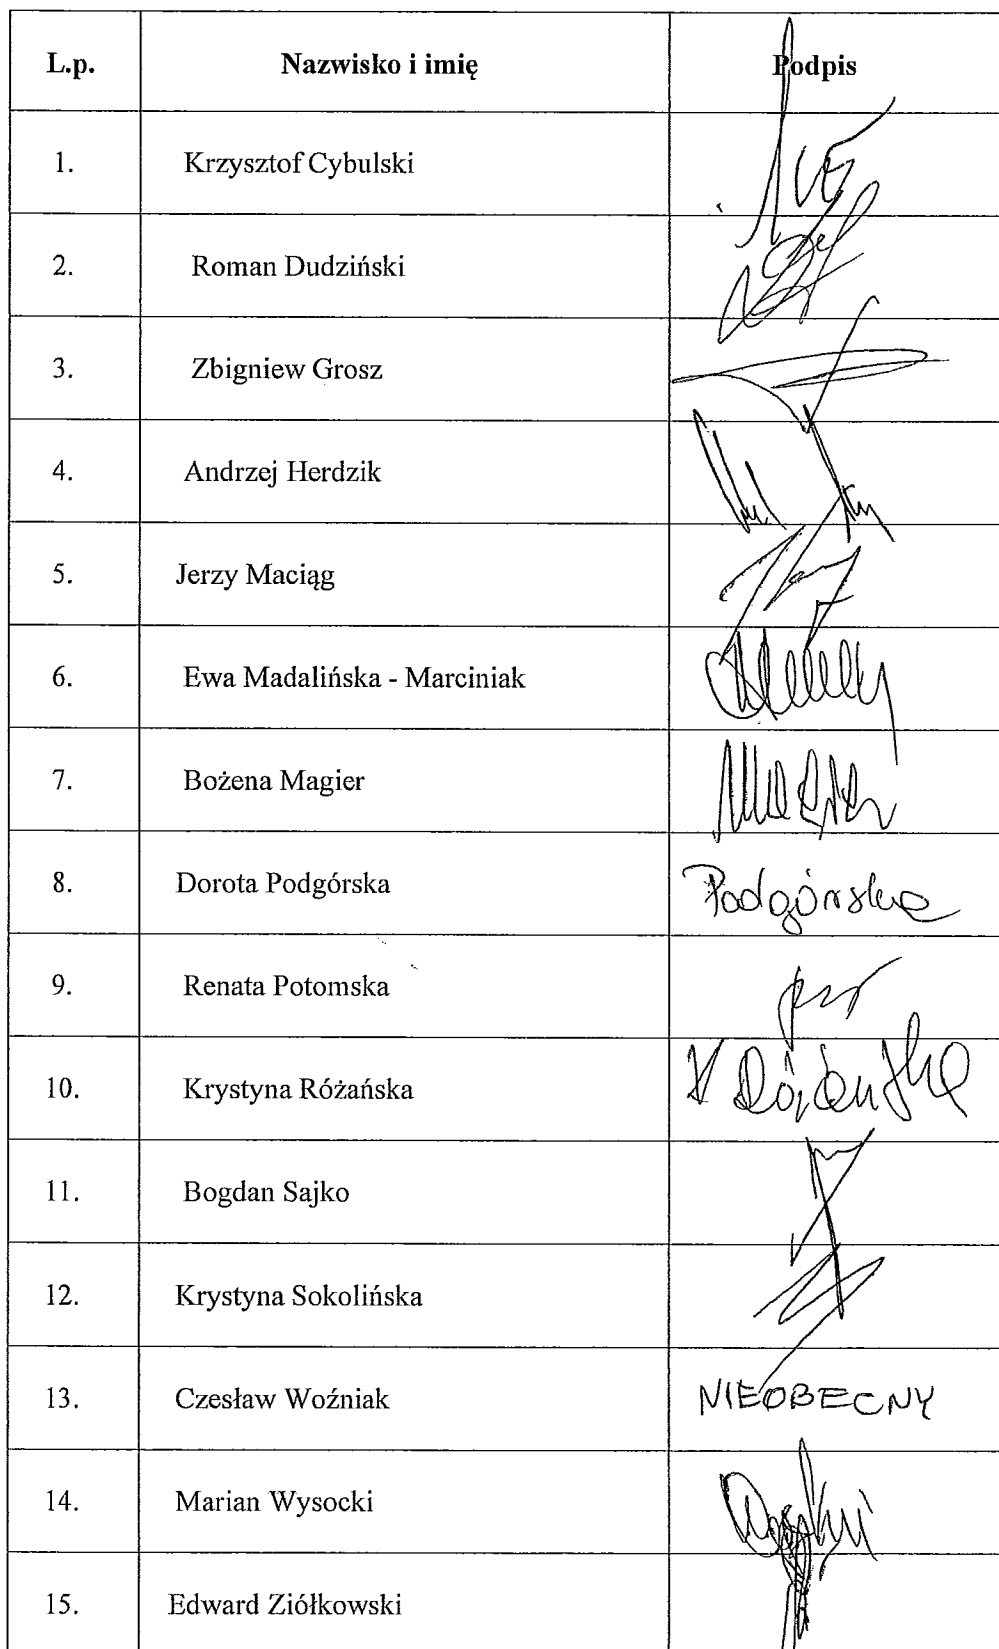 L.p. Nazwisko i imię Podpis
1. Krzysztof Cybulski
2. Roman Dudziński
3. Zbigniew Grosz
4. Andrzej Herdzik
5. Jerzy Maciąg
6. Ewa Madalińska - Marciniak
7. Bożena Magier
8. Dorota Podgórska Podgórska
9. Renata Potomska
10. Krystyna Różańska K Różańska
11. Bogdan Sajko
12. Krystyna Sokolińska
13. Czesław Woźniak NIEOBECNY
14. Marian Wysocki
15. Edward Ziółkowski